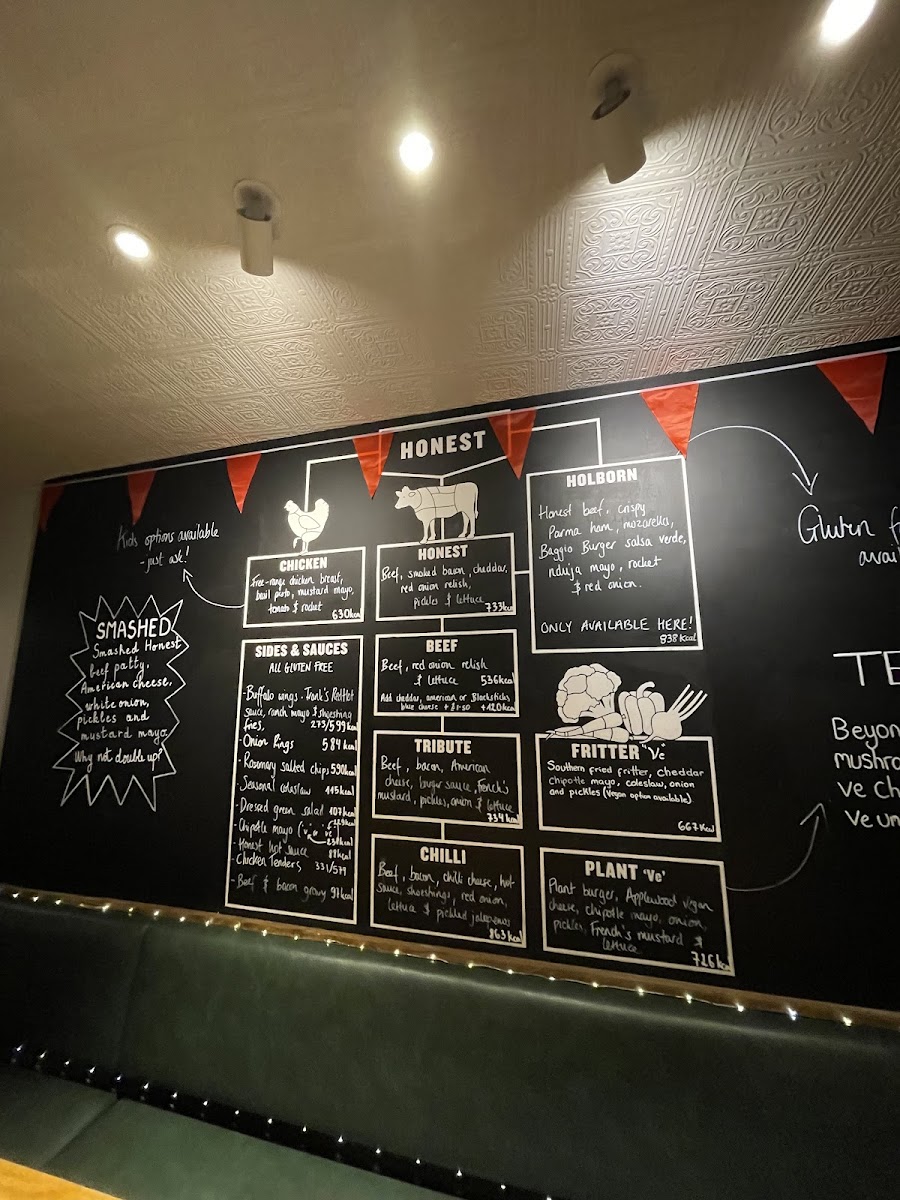 HONEST
Kids options available
- just ask!
SMASHED
Smashed Honest
beef patty,
American cheese,
white onion,
pickles and
mustard mayo.
Why not double up?
CHICKEN
Free-range chicken breast,
basil pesto, mustard mayo,
tomato & rocket
630kcal
SIDES & SAUCES
ALL GLUTEN FREE
- Buffalo wings - Frank's RedHot
Sauce, ranch mayo & shoestring
fries, 273/599kcal
- Onion Rings 584 kcal
- Rosemary salted chips 590kcal
- Seasonal coleslaw 445kcal
- Dressed green salad 107kcal
- Chipotle mayo
- Honest hot sauce 88kcal
- Chicken Tenders 331/579
- Beef & bacon gravy 97kcal
HONEST
Beef, smoked bacon, cheddar,
red onion relish,
pickles & lettuce
733kcal
BEEF
Beef, red onion relish
& lettuce 536kcal
Add cheddar, american or Blacksticks
blue cheese + £1.50 +120kcal
TRIBUTE
Beef, bacon, American
cheese, burger sauce, French's
mustard, pickles, onion & lettuce
734kcal
CHILLI
Beef, bacon, chilli cheese, hot
sauce, shoestrings, red onion,
lettuce & pickled jalapenos
863kcal
HOLBORN
Honest beef, crispy
Parma ham, mozarella,
Baggio Burger salsa verde,
nduja mayo, rocket
& red onion.
ONLY AVAILABLE HERE!
838kcal
FRITTER 've'
Southern fried fritter, cheddar
chipotle mayo, coleslaw, onion
and pickles (Vegan option available)
667kcal
PLANT 've'
Plant burger, Applewood vegan
cheese, chipotle mayo, onion,
pickles, French's mustard &
lettuce
726kcal
Gluten f
avail
TE
Beyon
mushro
ve ch
ve un